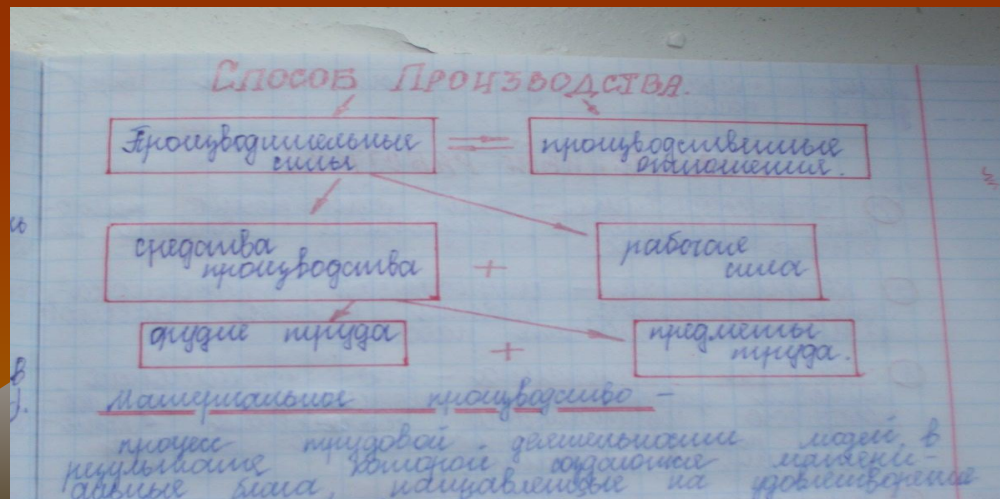 СПОСОБ ПРОИЗВОДСТВА.
Производительные силы
производственные отношения.
средства производства
+
рабочая сила
орудие труда
+
предметы труда.
Материальное производство –
процесс трудовой деятельности людей, в
результате которой создаются матери-
альные блага, направленные на удовлетворение